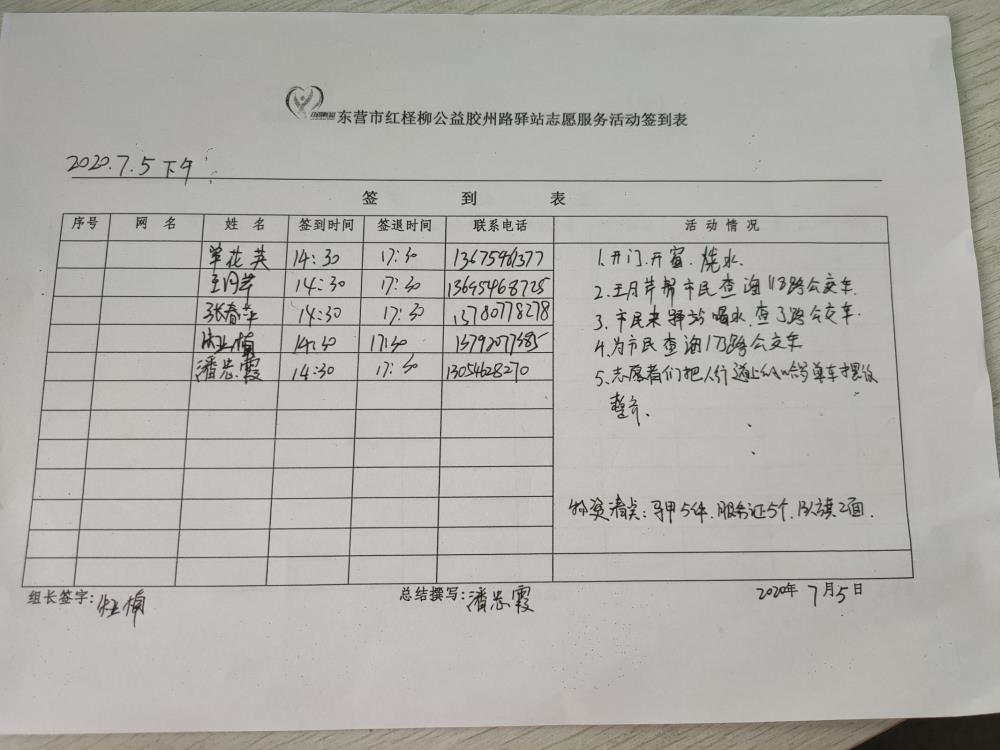 东营市红柽柳公益胶州路驿站志愿服务活动签到表
2020.7.5 下午
签 到 表
序号 网 名 姓 名 签到时间 签退时间 联系电话 活 动 情 况
单花英 14:30 17:30
王月芹 14:30 17:30 13695468725
张春华 14:30 17:30 13780778278
14:30 17:30
潘忠霞 14:30 17:30 1305468270
1.开门.开窗.烧水.
2.王月芹帮市民查询113路公交车.
3.市民来驿站喝水.查3路公交车.
4.为市民查询173路公交车
5.志愿者们把人行道上的哈罗单车摆设
整齐.
物资清点:马甲5件.服务证5个.队旗2面.
组长签字:
总结撰写:潘忠霞
2020年7月5日